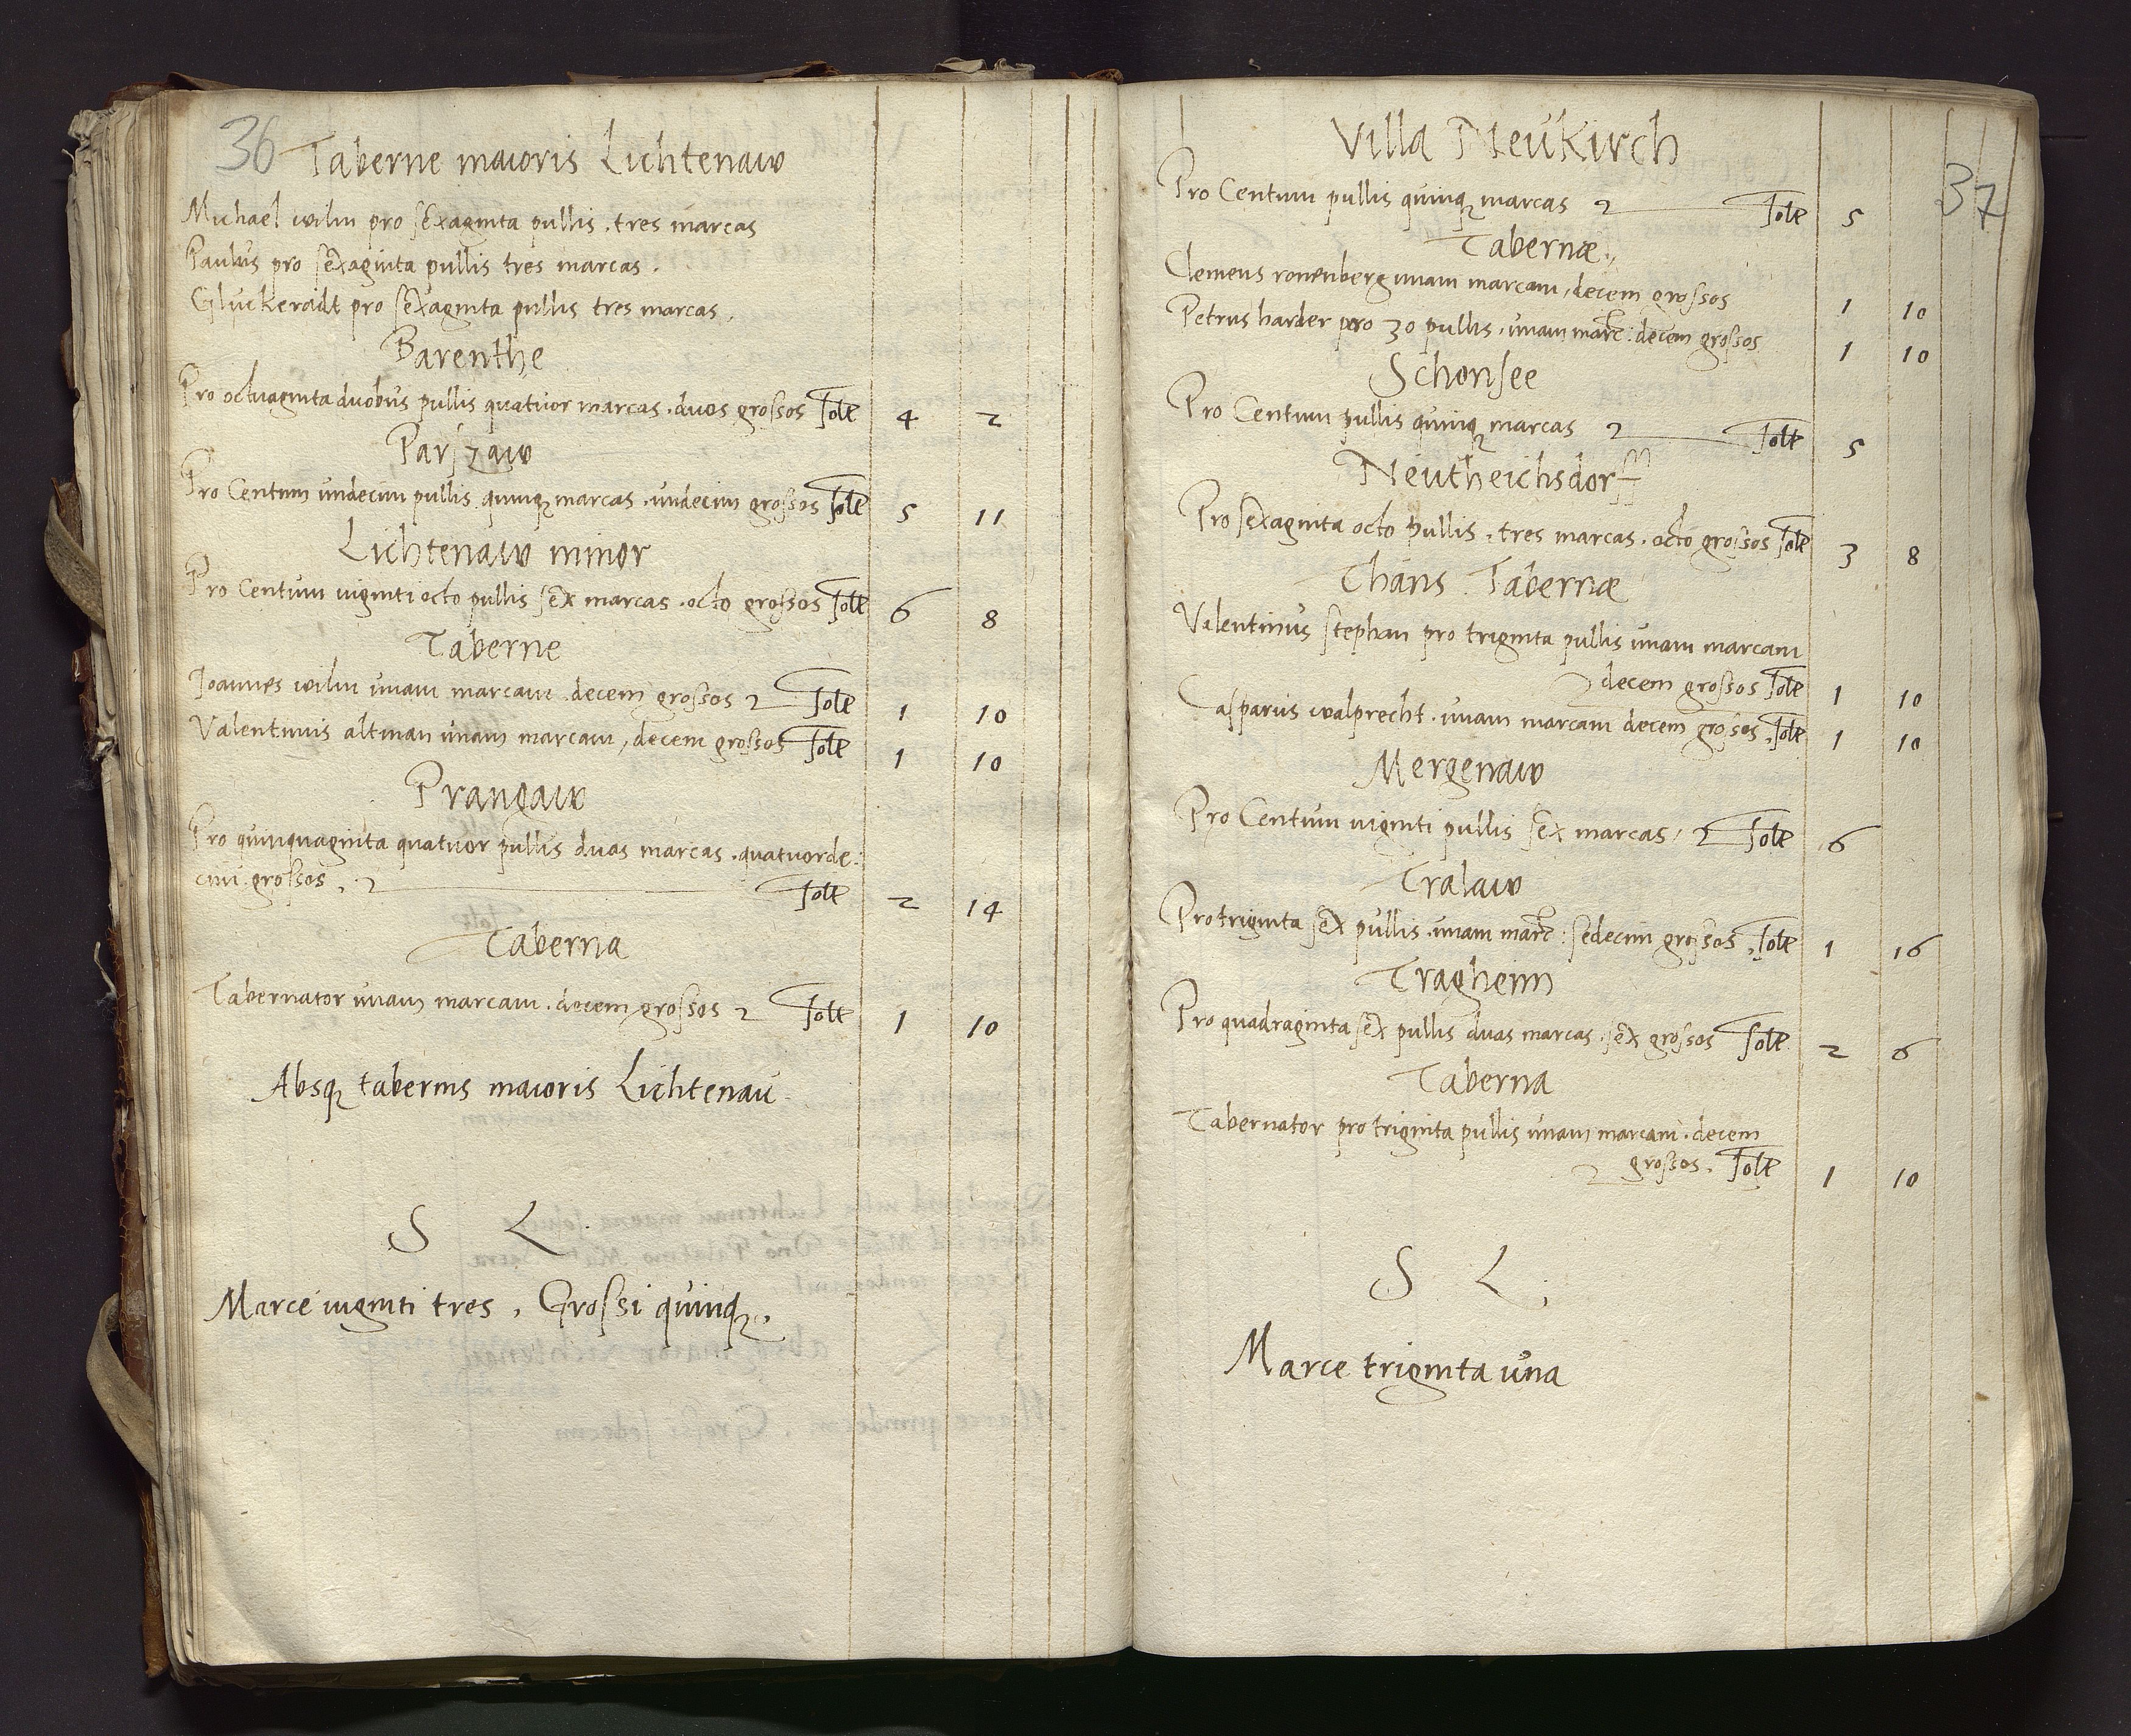 36 Taberne maioris Lichtenaw
Michael wilm pro sexaginta pullis . tres marcas
Paulus pro sexaginta pullis tres marcas .
Gluckeradt pro sexaginta pullis tres marcas .
Barenthe
Pro octuaginta duobus pullis quatuor marcas . duos grossos Solt 4 2
Parszaw
Pro Centum undecim pullis quinq marcas . undecim grossos Solt 5 11
Lichtenaw minor
Pro Centum viginti octo pullis sex marcas . octo grossos Solt 6 8
Taberne
Joannes wilm unam marcam . decem grossos Solt 1 10
Valentinus altman unam marcam , decem grossos Solt 1 10
Prangaw
Pro quinquaginta quatuor pullis duas marcas . quatuorde.
cim grossos . Solt 2 14
Taberna
Tabernator unam marcam . decem grossos Solt 1 10
Absq tabernis maioris Lichtenau .
S L .
Marce viginti tres , Grossi quinq .
37
Villa Neukirch
Pro Centum pullis quinq marcas Solt 5
Tabernæ .
Clemens ronenberg unam marcam , decem grossos 1 10
Petrus harder pro 30 pullis . unam marc : decem grossos 1 10
Schonsee
Pro Centum pullis quinq marcas Solt 5
Neutheichsdorff
Pro sexaginta octo pullis . tres marcas . octo grossos Solt 3 8
Thans Tabernæ
Valentinus stephan pro triginta pullis unam marcam
decem grossos Solt 1 10
Casparus walprecht . unam marcam decem grossos . Solt 1 10
Mergenaw
Pro Centum viginti pullis sex marcas , Solt 6
Tralaw
Pro triginta sex pullis . unam marc : sedecim grossos . Solt 1 16
Tragheim
Pro quadraginta sex pullis duas marcas . sex grossos Solt 2 6
Taberna
Tabernator pro triginta pullis unam marcam . decem
grossos . Solt 1 10
S L .
Marce triginta una